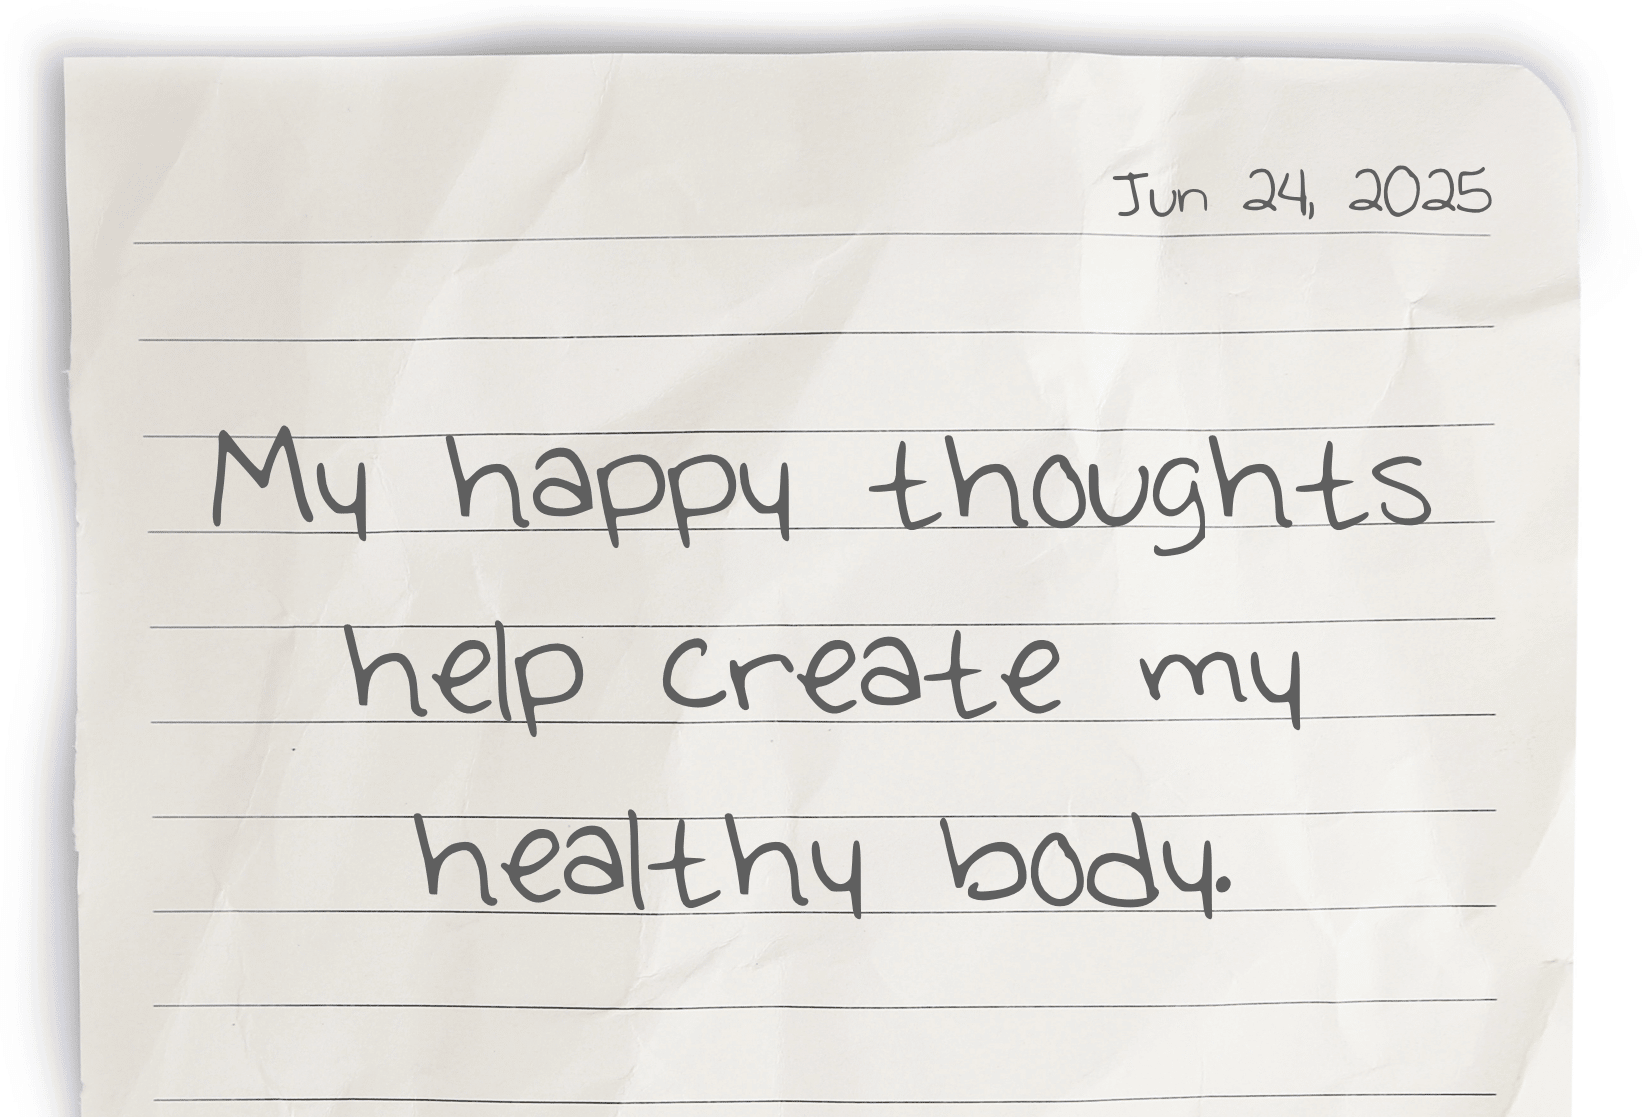 Jun 24, 2025
My happy thoughts
help create my
healthy body.